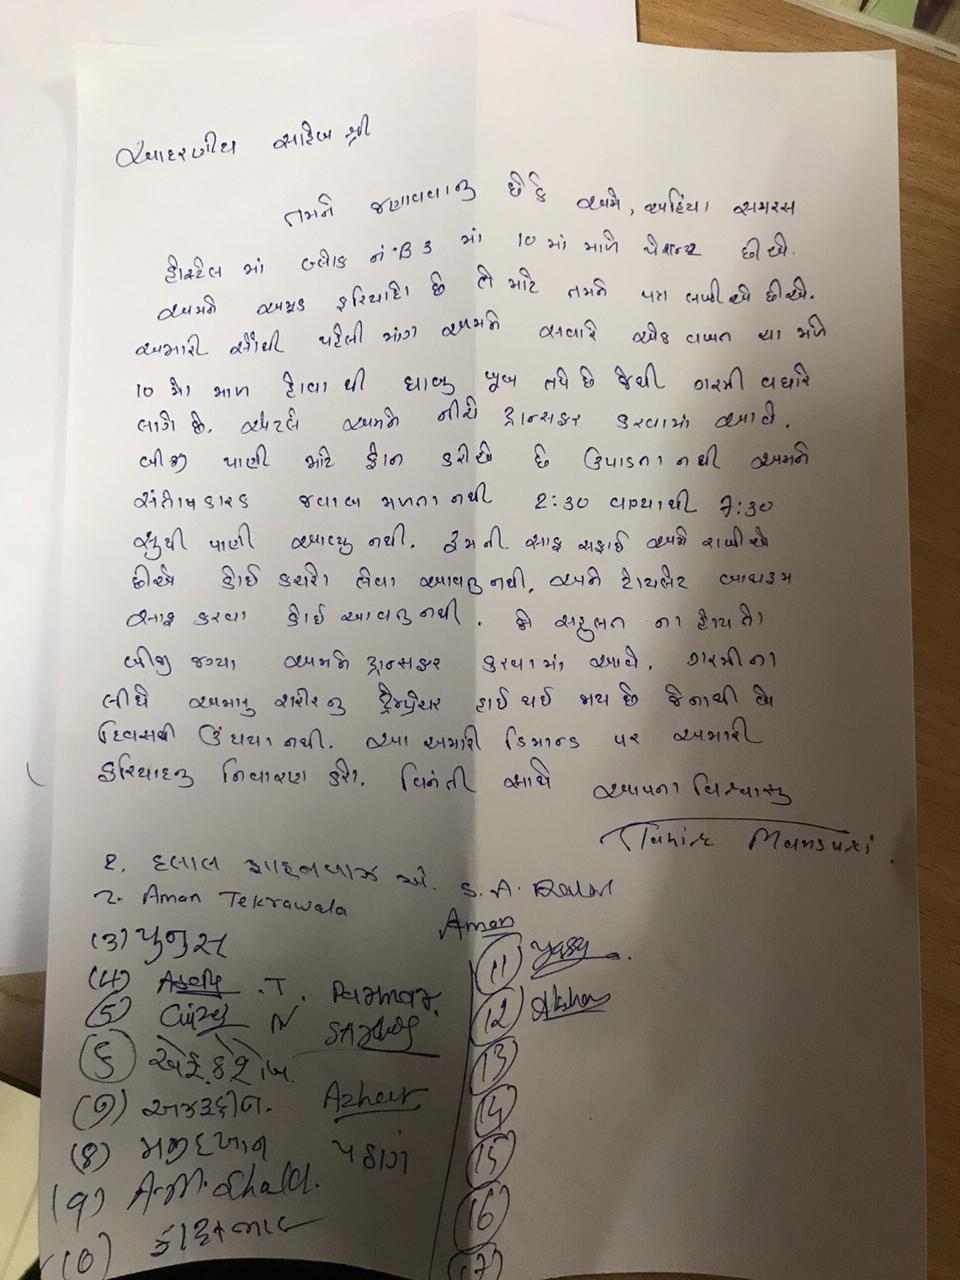 આદરણીય સાહેબ શ્રી
તમને જણાવવાનુ છે કે અમે, અહિંયા સમરસ
હોસ્ટેલ માં બ્લોક નં B 3 માં 10 માં માળે પેશન્ટ છીએ.
અમને અમુક ફરિયાદો છે તે માટે તમને પત્ર લખીએ છીએ.
અમારી સૌથી પહેલી માંગ અમને સવારે એક વખત ચા મળે
10 મો માળ હોવા થી ધાબુ ખૂબ તપે છે જેથી ગરમી વધારે
લાગે છે. એટલે અમને નીચે ટ્રાન્સફર કરવામાં આવે.
બીજુ પાણી માટે ફોન કરીએ છે ઉપાડતા નથી અમને
સંતોષકારક જવાબ મળતા નથી 2:30 વાગ્યાથી 7:30
સુધી પાણી આવ્યુ નથી. રૂમની સાફ સફાઈ અમે રાખીએ
છીએ કોઈ કચરો લેવા આવતુ નથી, અને ટોયલેટ બાથરૂમ
સાફ કરવા કોઈ આવતુ નથી. જો સહુલત ના હોય તો
બીજી જગ્યા અમને ટ્રાન્સફર કરવામાં આવે. ગરમીના
લીધે અમારુ શરીરનુ ટ્રેમ્પ્રેચર હાઈ થઈ જાય છે જેનાથી બે
દિવસથી ઉંઘયા નથી. આ અમારી ડિમાન્ડ પર અમારી
ફરિયાદનુ નિવારણ કરો. વિનંતી સાથે આપના વિશ્વાસુ
Tahir Mansuri.
૨. દલાલ શાહનવાઝ એ. S. A. Dalal
2. Aman Tekrawala Aman
(૩) યુનુસ
(4) .T. Parmar.
(5) N
(૬)
(૭) અઝરૂદ્દીન. Azhar
(૪) પઠાણ
(9) A.M.
(10)
(11)
(12) Akshay
(13)
(14)
(15)
(16)
(17)